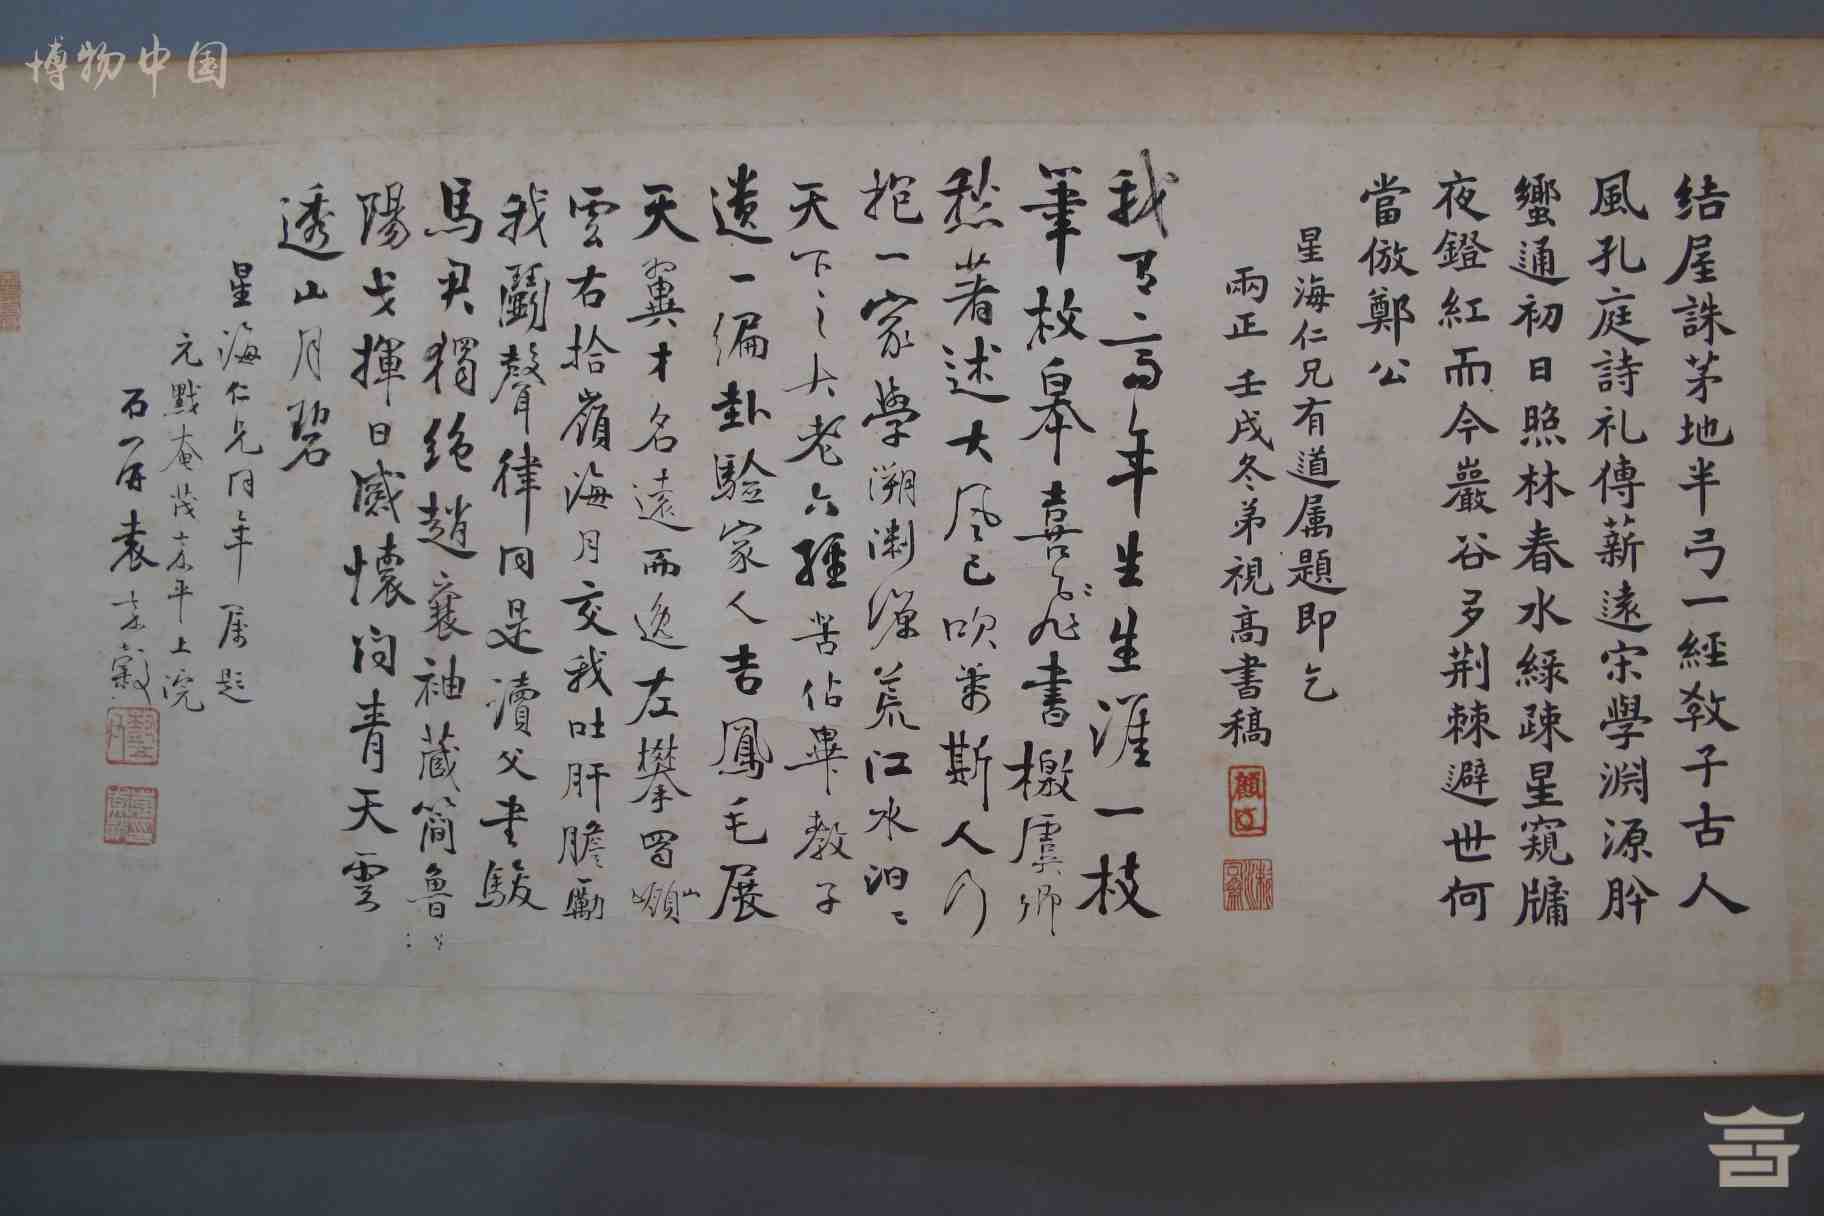 博物中国
結屋誅茅地半弓一經教子古人
風孔庭詩礼傳薪遠宋學淵源肸
蠁通初日照林春水綠疎星窺牖
夜鐙紅而今巖谷多荆棘避世何
當倣鄭公
星海仁兄有道属題即乞
兩正壬戌冬弟視高書稿
我年生生涯一枝
筆枚皋喜飛書檄虞卿
愁著述大風已吹萬斯人乃
抱一家學溯淵源荒江水泊〻
天下之大老六經苦佔畢教子
遺一編卦驗家人吉鳳毛展
天翼才名遠而逸左攀蜀
雲右拾嶺海月交我吐肝膽勵
我鬭聲律同是讀父書駿
馬君獨絶趙襄袖蔵簡魯
陽戈揮日感懷问青天雲
透山月碧
星海仁兄同年属题
元黓奄茂上浣
石袁